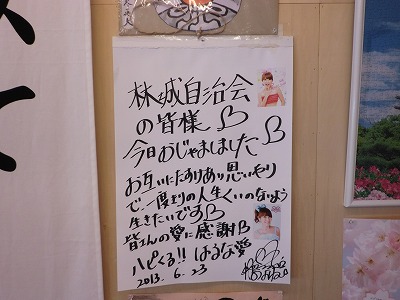 林城自治会
の皆様
今日おじゃましました
お互いにたすけあり思いやり
で、一度きりの人生くいのないよう
生きたいです
皆さんの愛に感謝
ハピくる!! はるな愛
2013. 6. 23